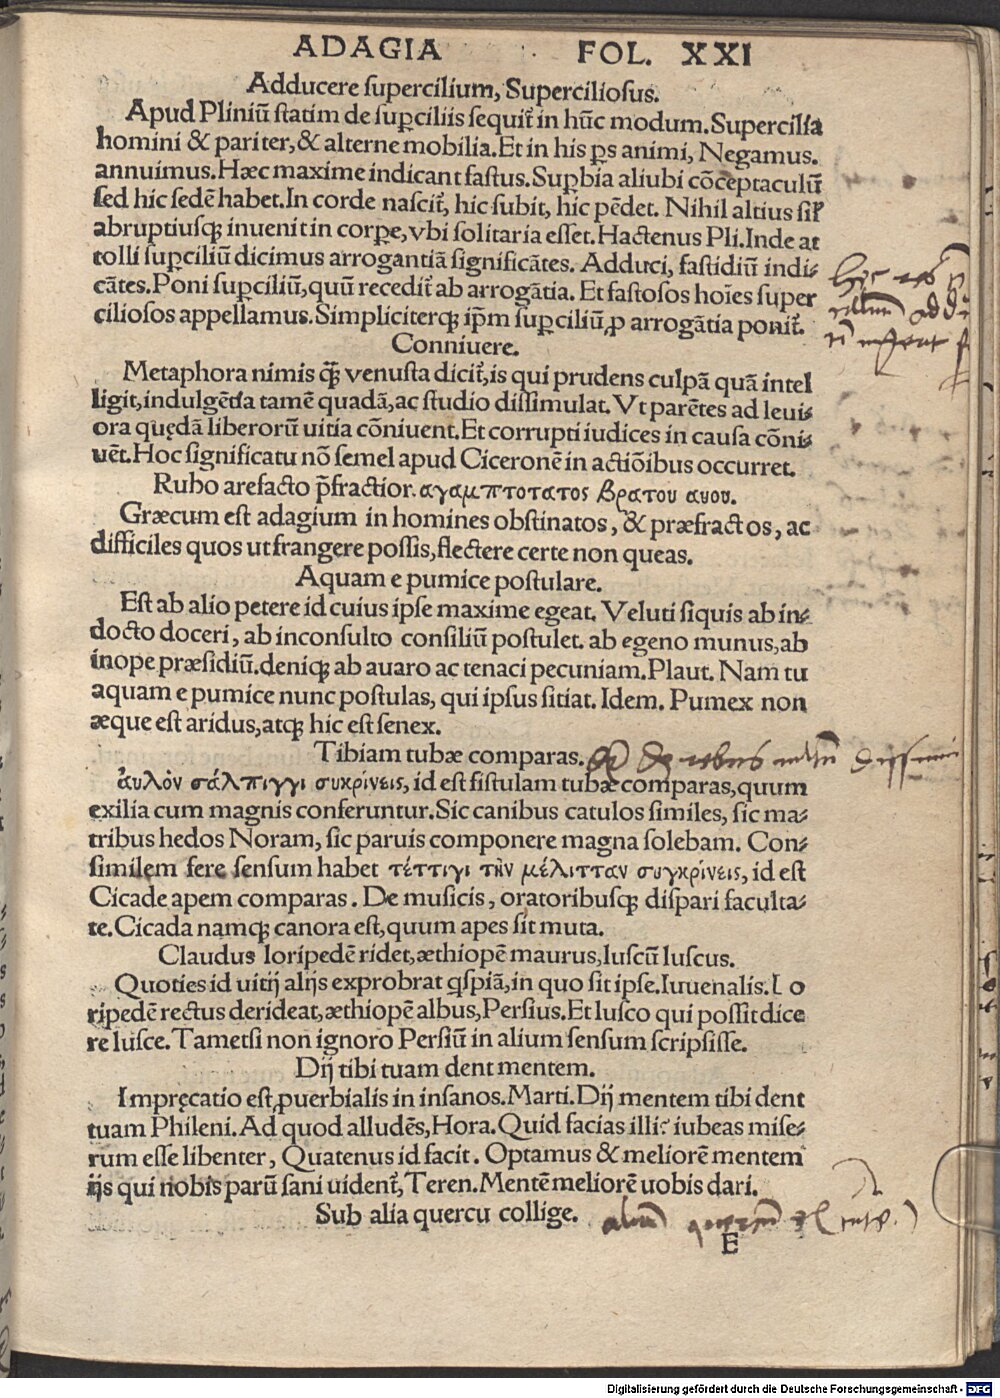 ADAGIA FOL. XXI
Adducere ſupercilium, Superciliosus.
Apud Pliniū ſtatim de sup̱ciliis ſequit̃ in hūc modum. Supercilia
homini & pariter, & alterne mobilia. Et in his p̱s animi, Negamus.
annuimus. Hæc maxime indicant faſtus. Sup̱bia aliubi cōceptaculū
ſed hic ſedē habet. In corde naſcit̃, hic ſubit, hic pēdet. Nihil altius ſił
abruptiuſq; inuenit in corp̱e, vbi ſolitaria eſſet. Hactenus Pli. Inde at
tolli ſup̱ciliū dicimus arrogantiā ſignificātes. Adduci, faſtidiū indi⸗
cātes. Poni ſup̱ciliū, quū recedit̃ ab arrogātia. Et faſtoſos hoīes ſuper
cilioſos appellamus. Simpliciterq; ip̄m ſup̱ciliū, ꝓ arrogātia ponit̃.
Conniuere.
Metaphora nimis q̄ꝫ venuſta dicit̃, is qui prudens culpā quā intel
ligit, indulgētia tamē quadā, ac ſtudio diſſimulat. Vt parētes ad leui⸗
ora quędā liberorū uitia cōniuent. Et corrupti iudices in cauſa cōni⸗
uēt. Hoc ſignificatu nō ſemel apud Ciceronē in actiōibus occurret.
Rubo arefacto p̄fractior. αγαμπτοτατος βρατου αυου.
Græcum eſt adagium in homines obſtinatos, & præfractos, ac
difficiles quos ut frangere poſſis, flectere certe non queas.
Aquam e pumice poſtulare.
Eſt ab alio petere id cuius ipſe maxime egeat. Veluti ſiquis ab in⸗
docto doceri, ab inconſulto conſiliū poſtulet. ab egeno munus, ab
inope præſidiū. deniq; ab auaro ac tenaci pecuniam. Plaut. Nam tu
aquam e pumice nunc poſtulas, qui ipſus ſitiat. Idem. Pumex non
æque eſt aridus, atq; hic eſt ſenex.
Tibiam tubæ comparas. de rebus
ἀυλὸν σάλπιγγι συκρίνεις, id eſt fiſtulam tubæ comparas, quum
exilia cum magnis conferuntur. Sic canibus catulos ſimiles, ſic ma⸗
tribus hedos Noram, ſic paruis componere magna ſolebam. Con⸗
ſimilem fere ſenſum habet τέττιγι τὴν μέλιτταν συγκρίνεις, id eſt
Cicade apem comparas. De muſicis, oratoribuſq; diſpari faculta⸗
te. Cicada namq; canora eſt, quum apes ſit muta.
Claudus loripedē ridet, æthiopē maurus, luſcū luſcus.
Quoties id uitij alijs exprobrat qſpiā, in quo ſit ipſe. Iuuenalis. L o
ripedē rectus derideat, æthiopē albus, Perſius. Et luſco qui poſſit dice
re luſce. Tametſi non ignoro Perſiū in alium ſenſum ſcripſiſſe.
Dij tibi tuam dent mentem.
Impręcatio eſt ꝓuerbialis in inſanos. Marti. Dij mentem tibi dent
tuam Phileni. Ad quod alludēs, Hora. Quid facias illi? iubeas miſe⸗
rum eſſe libenter, Quatenus id facit. Optamus & meliorē mentem
ijs qui nobis parū ſani uident̃, Teren. Mentē meliorē uobis dari.
Sub alia quercu collige.
E
Digitalisierung gefördert durch die Deutsche Forschungsgemeinschaft - DFG